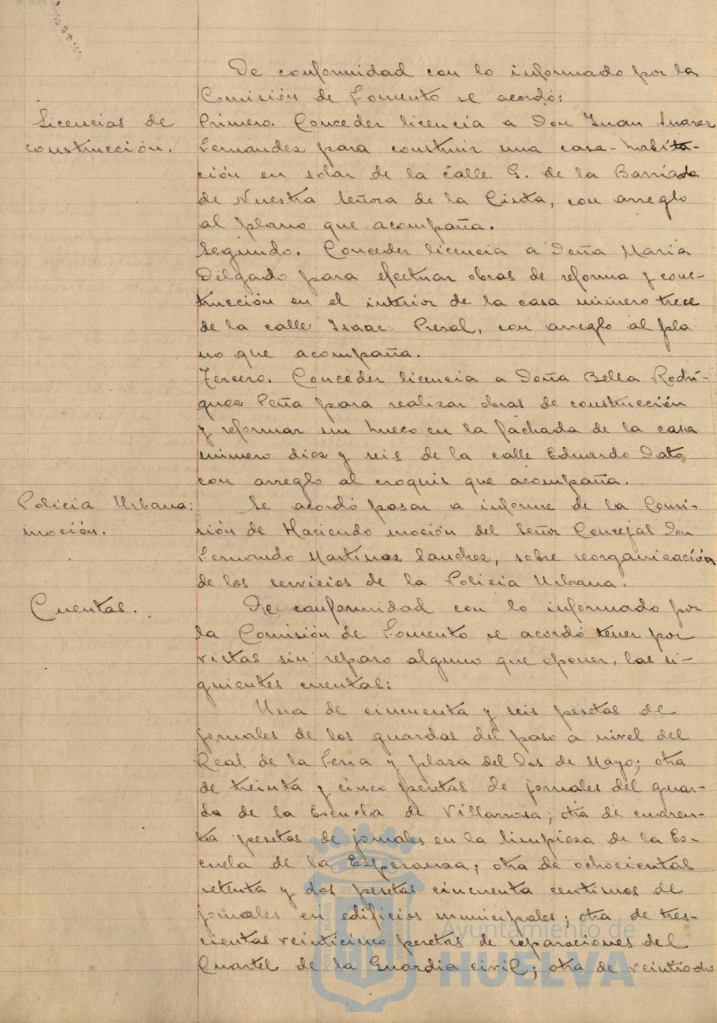 De conformidad con lo informado por la
Comisión de Fomento se acordó:
Licencias de
construcción.
Primero. Conceder licencia a Don Juan Suarez
Fernandez para construir una casa-habita-
ción en solar de la calle G. de la Barriada
de Nuestra Señora de la Cinta, con arreglo
al plano que acompaña.
Segundo. Conceder licencia a Doña Maria
Delgado para efectuar obras de reforma y cons-
trucción en el interior de la casa número trece
de la calle Isaac Peral, con arreglo al pla
no que acompaña.
Tercero. Conceder licencia a Doña Bella Rodri-
guez Peña para realizar obras de construcción
y reformar un hueco en la fachada de la casa
número diez y seis de la calle Eduardo Dato
con arreglo al croquis que acompaña.
Policia Urbana:
moción.
Se acordó pasar a informe de la Comi-
sión de Hacienda moción del Señor Concejal Don
Fernando Martinez Sanchez, sobre reorganización
de los servicios de la Policia Urbana.
Cuentas.
De conformidad con lo informado por
la Comisión de Fomento se acordó tener por
vistas sin reparo alguno que oponer, las si-
guientes cuentas:
Una de cincuenta y seis pesetas de
jornales de los guardas del paso a nivel del
Real de la Feria y plaza del Dos de Mayo; otra
de treinta y cinco pesetas de jornales del guar-
da de la Escuela de Villarrosa; otra de cuaren-
ta pesetas de jornales en la limpieza de la Es-
cuela de la Esperanza; otra de ochocientas
setenta y dos pesetas cincuenta centimos de
jornales en edificios municipales; otra de tres-
cientas veinticinco pesetas de reparaciones del
Cuartel de la Guardia civil; otra de veintidos
Ayuntamiento de
HUELVA